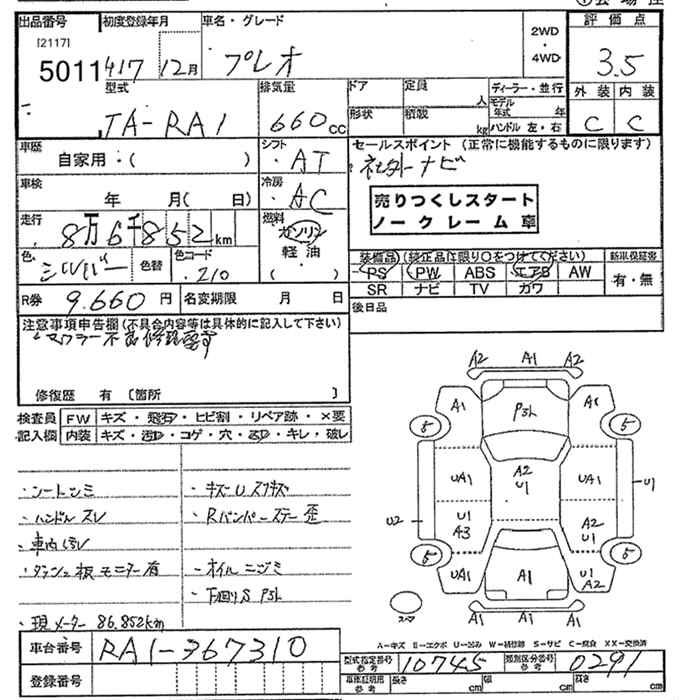 出品番号 初度登録年月 車名・グレード 2WD・4WD 評価点
[2117]
5011 H17 12月 プレオ 3.5
型式 排気量 ドア 定員 人 ディーラー・並行 外装 内装
TA-RA1 660cc 形状 積載 kg モデル年式 年 ハンドル左・右 C C
車歴 シフト セールスポイント (正常に機能するものに限ります)
自家用:( ) AT 社外ナビ
車検 冷房
年 月( 日) AC 売りつくしスタート
走行 燃料 ノークレーム車
8万6千852km ガソリン
軽油
( ) 装備品 (純正品に限り○をつけてください) 新車保証書
色 色替 色コード PS PW ABS エアB AW 有・無
シルバー 210 SR ナビ TV カワ
R券 9.660円 名変期限 月 日 後日品
注意事項申告欄 (不具合内容等は具体的に記入して下さい)
マフラー不良修理要す
修復歴 有 〔箇所 〕
検査員 FW キズ・飛石・ヒビ割・リペア跡・×要
記入欄 内装 キズ・汚D・コゲ・穴・ネD・キレ・破レ
・シートシミ ・キズU スリキズ
・ハンドルスレ ・Rバンパーステー歪
・車内汚レ
・ダッシュ板モニター有 ・オイルニゴミ
・下回りS PSL
・現メーター 86.852km
A2 A1 A2
A1 PSL A1
5 5
UA1 A2 UA1
U1 U1
U2 U1 A2
A3 U1
5 5
UA1 A1 U1
A2
スペア A1 A1 A1
A-キズ E-エクボ U-凹み W-補修跡 S-サビ C-腐食 XX-交換済
車台番号 RA1-367310
型式指定番号 参考 10745 類別区分番号 参考 0291
登録番号 車庫証明用 参考 長さ cm 幅 cm 高さ cm